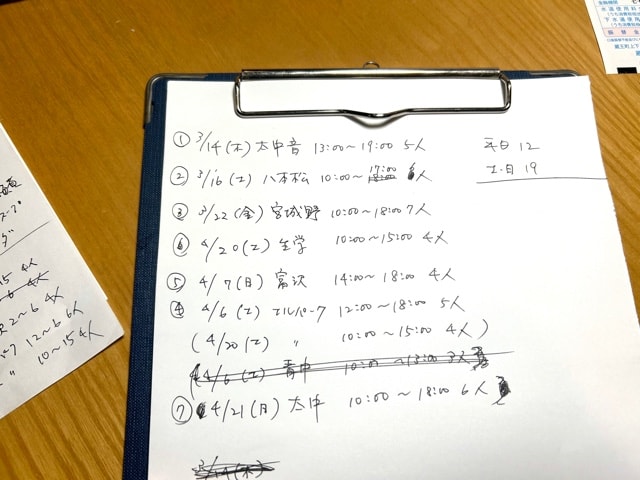 ① 3/14(木) 太中音 13:00～19:00 5人
平日 12
② 3/16(土) 八本松 10:00～17:00 人
土・日 19
③ 3/22(金) 宮城野 10:00～18:00 7人
⑥ 4/20(土) 生学 10:00～15:00 4人
⑤ 4/7(日) 富沢 14:00～18:00 4人
④ 4/6(土) エルパーク 12:00～18:00 5人
(4/20(土) 〃 10:00～15:00 4人)
(4/6(土) 青中 10:00～13:00 3人
⑦ 4/21(日) 太中 10:00～18:00 6人
3/14(木)
15 4人
6 4人
2～6 4人
12～6 6人
〃 10～15 4人
水道使用料
下水道使用